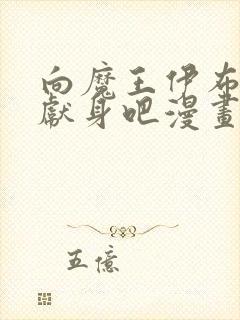 向魔王伊布
獻身吧漫畫
五億